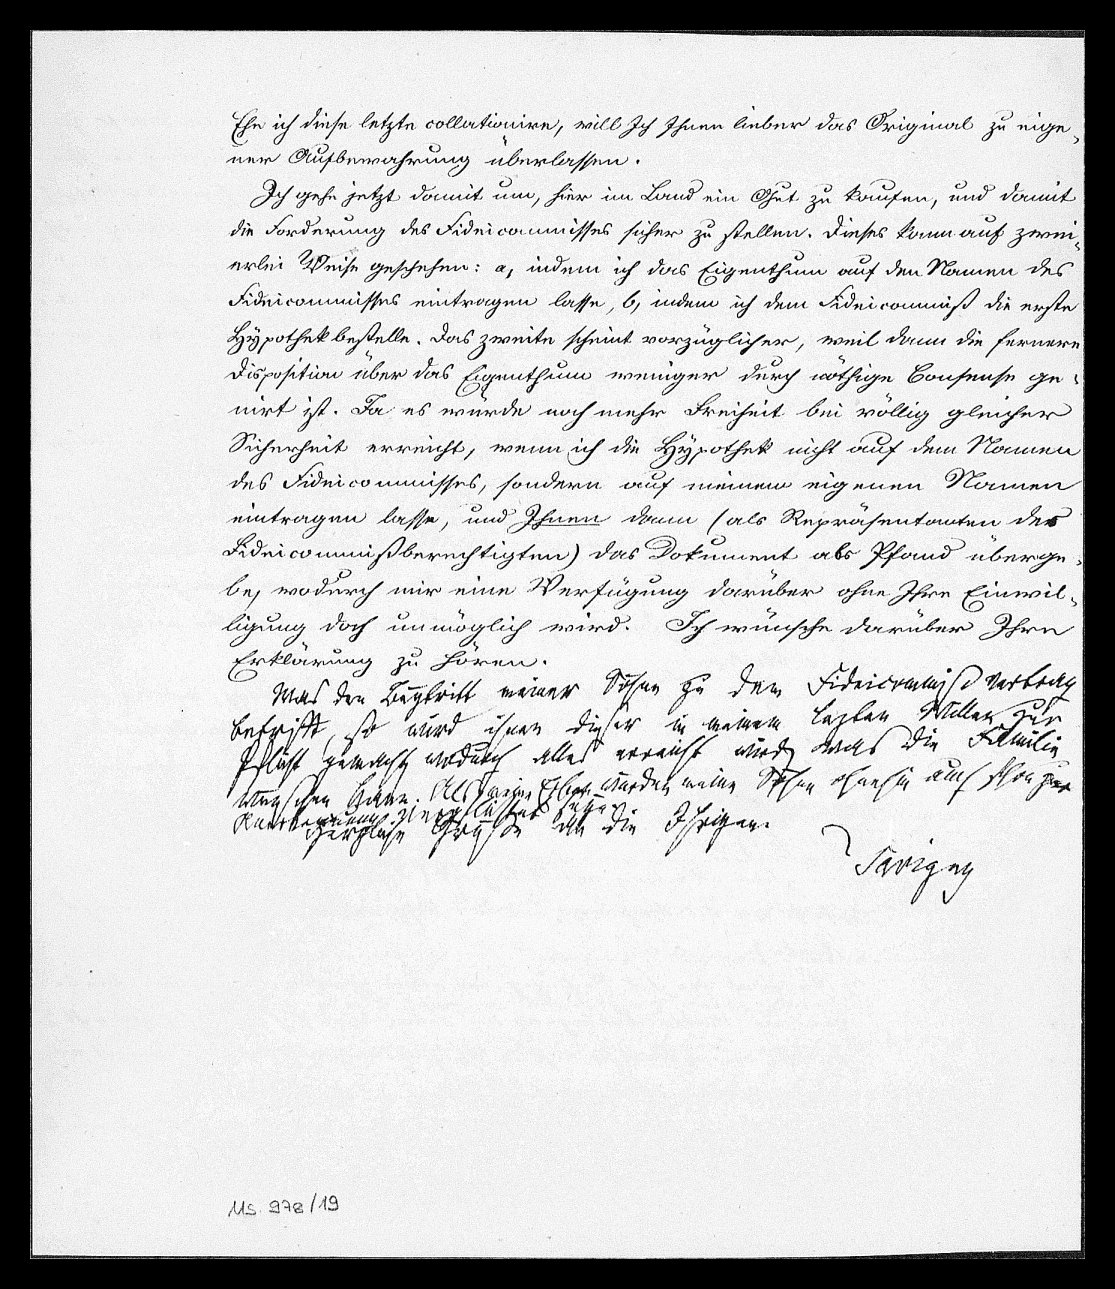 Ehe ich diese letzte collationire, will Ich Ihnen lieber das Original zu eige-
ner Aufbewahrung überlassen.
Ich gehe jetzt damit um, hier im Land ein Gut zu kaufen, und damit
die Forderung des Fideicommisses sicher zu stellen. Dieses kann auf zwei-
erlei Weise geschehen: a, indem ich das Eigenthum auf den Namen des
Fideicommisses eintragen lasse, b, indem ich dem Fideicommiß die erste
Hypothek bestelle. Das zweite scheint vorzüglicher, weil dann die fernere
Disposition über das Eigenthum weniger durch nöthige Consense ge-
nirt ist. Ja es würde noch mehr Freiheit bei völlig gleicher
Sicherheit erreicht, wenn ich die Hypothek nicht auf dem Namen
des Fideicommisses, sondern auf meinem eigenen Namen
eintragen lasse, und Ihnen dann (als Repräsentanten der
Fideicommißberechtigten) das Dokument als Pfand überge-
be, wodurch mir eine Verfügung darüber ohne Ihre Einwil-
ligung doch unmöglich wird. Ich wünsche darüber Ihre
Erklärung zu hören.
Was den Beytritt meiner Söhne zu dem Fideicommiß vertrag
betrifft, so wird ihnen dieser in meinem lezten Willen zur
Pflicht gemacht, wodurch alles erreicht wird, was die Familie
wünschen kann. Als meine Erben würden meine Söhne ohnehin auch schon zur
Anerkennung verpflichtet seyn.
Herzliche Grüße an die Ihrigen.
Savigny
Ms. 978/19